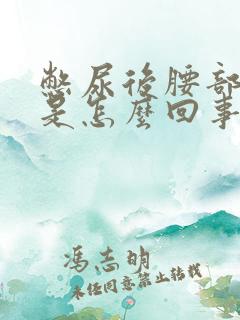 憋尿後腰部
是怎麼回事
馮志明
未經同意禁止轉載